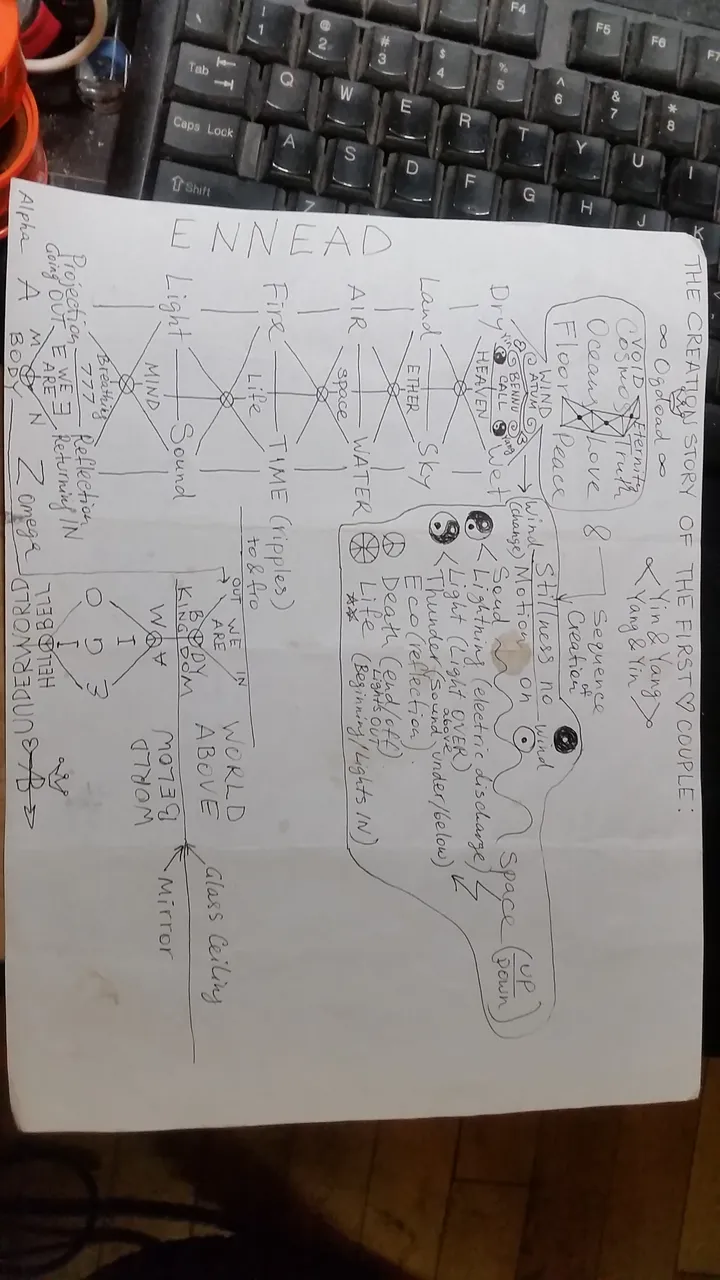 THE CREATION STORY OF THE FIRST ♡ COUPLE:
∞ Ogdoad ∞
< Yin & Yang >
Yang & Yin
VOID Eternity
Cosmos Truth
Ocean Love
Floor Peace
& Sequence
of
Creation
WIND
ATUM
BENNU
CALL
Yin
Yang
Dry HEAVEN Wet
Land ETHER Sky
AIR space WATER
Fire Life TIME (ripples)
to & fro
Light MIND Sound
Breathing
777
Projection Reflection
Going OUT E WE Ǝ Returning IN
ARE
Alpha A M N Z Omega
BODY
ENNEAD
Wind Stillness no Wind
(change) Motion on
Sound Space (UP
Down)
< Lightning (electric discharge)
Light (Light OVER)
above
< Thunder (sound under/below)
Eco (reflection)
Death (end/off)
Lights OUT
Life (Beginning/Lights IN)
OUT WE IN
ARE
BODY
KINGDOM
WORLD
ABOVE
WORLD
BELOW
Glass Ceiling
Mirror
HELL
BELL
UNDERWORLD
F4
F5
F6
F7
! 1
@ 2
# 3
$ 4
% 5
^ 6
& 7
* 8
Tab
Q
W
E
R
T
Y
U
I
Caps Lock
A
S
D
F
G
H
J
K
Shift
Z